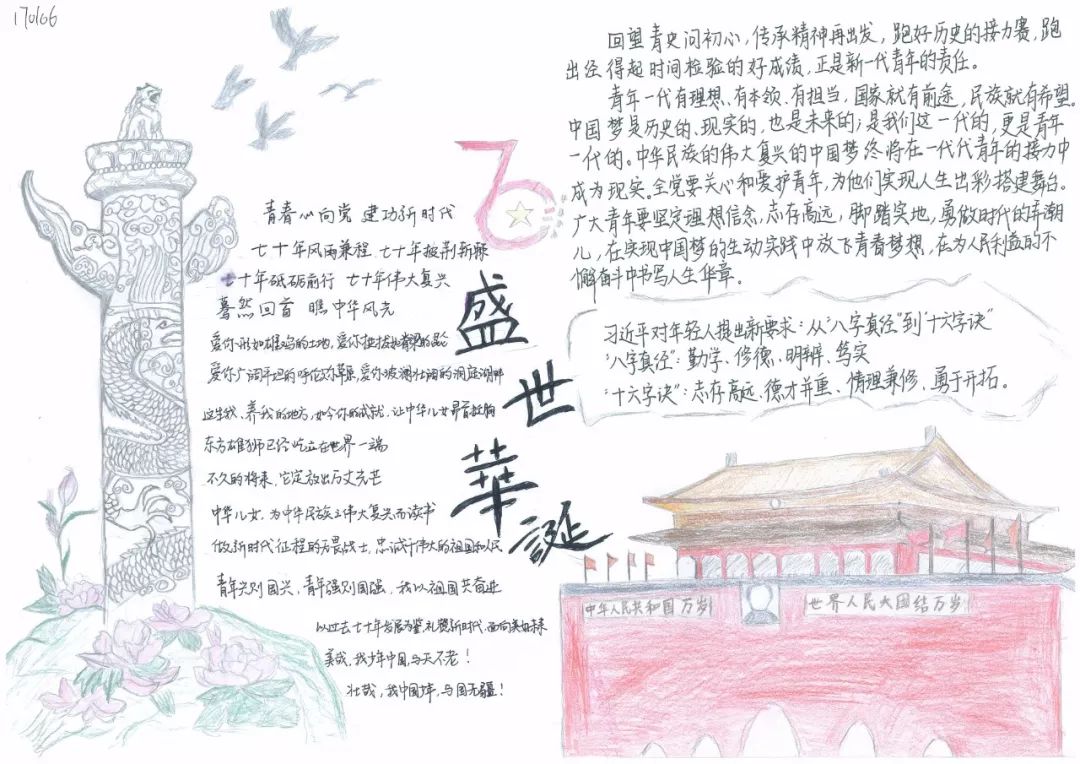 170106
青春心向党 建功新时代
七十年风雨兼程 七十年披荆斩棘
七十年砥砺前行 七十年伟大复兴
蓦然回首 瞧中华风光
爱你形如雄鸡的土地,爱你挺拔如脊梁的
爱你广阔平坦的呼伦尔草原,爱你波澜壮阔的洞庭湖畔
这生我、养我的地方,如今你的成就,让中华儿女昂首挺胸
东方雄狮已经屹立在世界一端
不久的将来,它定放出万丈光芒
中华儿女,为中华民族之伟大复兴而读书
做新时代征程的无畏战士,忠诚于伟大的祖国和人民
青年兴则国兴,青年强则国强,我以祖国共奋进
以过去七十年发展为鉴,礼赞新时代,面向美好未来
美哉,我少年中国,与天不老!
壮哉,我中国少年,与国无疆!
70
盛世華誕
回望青史问初心,传承精神再出发,跑好历史的接力赛,跑
出经得起时间检验的好成绩,正是新一代青年的责任。
青年一代有理想、有本领、有担当,国家就有前途,民族就有希望。
中国梦是历史的、现实的,也是未来的;是我们这一代的,更是青年
一代的。中华民族的伟大复兴的中国梦终将在一代代青年的接力中
成为现实。全党要关心和爱护青年,为他们实现人生出彩搭建舞台。
广大青年要坚定理想信念,志存高远,脚踏实地,勇做时代的弄潮
儿,在实现中国梦的生动实践中放飞青春梦想,在为人民利益的不
懈奋斗中书写人生华章。
习近平对年轻人提出新要求:从“八字真经”到“十六字诀”
“八字真经”:勤学、修德、明辨、笃实
“十六字诀”:志存高远、德才并重、情理兼修、勇于开拓。
中华人民共和国万岁
世界人民大团结万岁